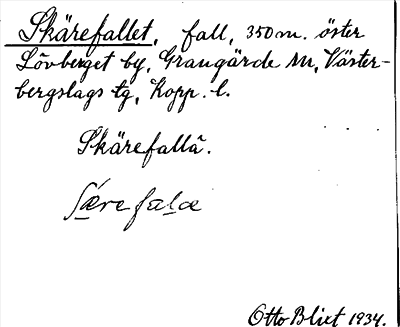 Skärefallet, fall, 350 m. öster
Lövberget by, Grangärde sn, Väster-
bergslags tg, Kopp. l.
Skärefallä.
ſǽre falæ
Otto Blixt 1934.